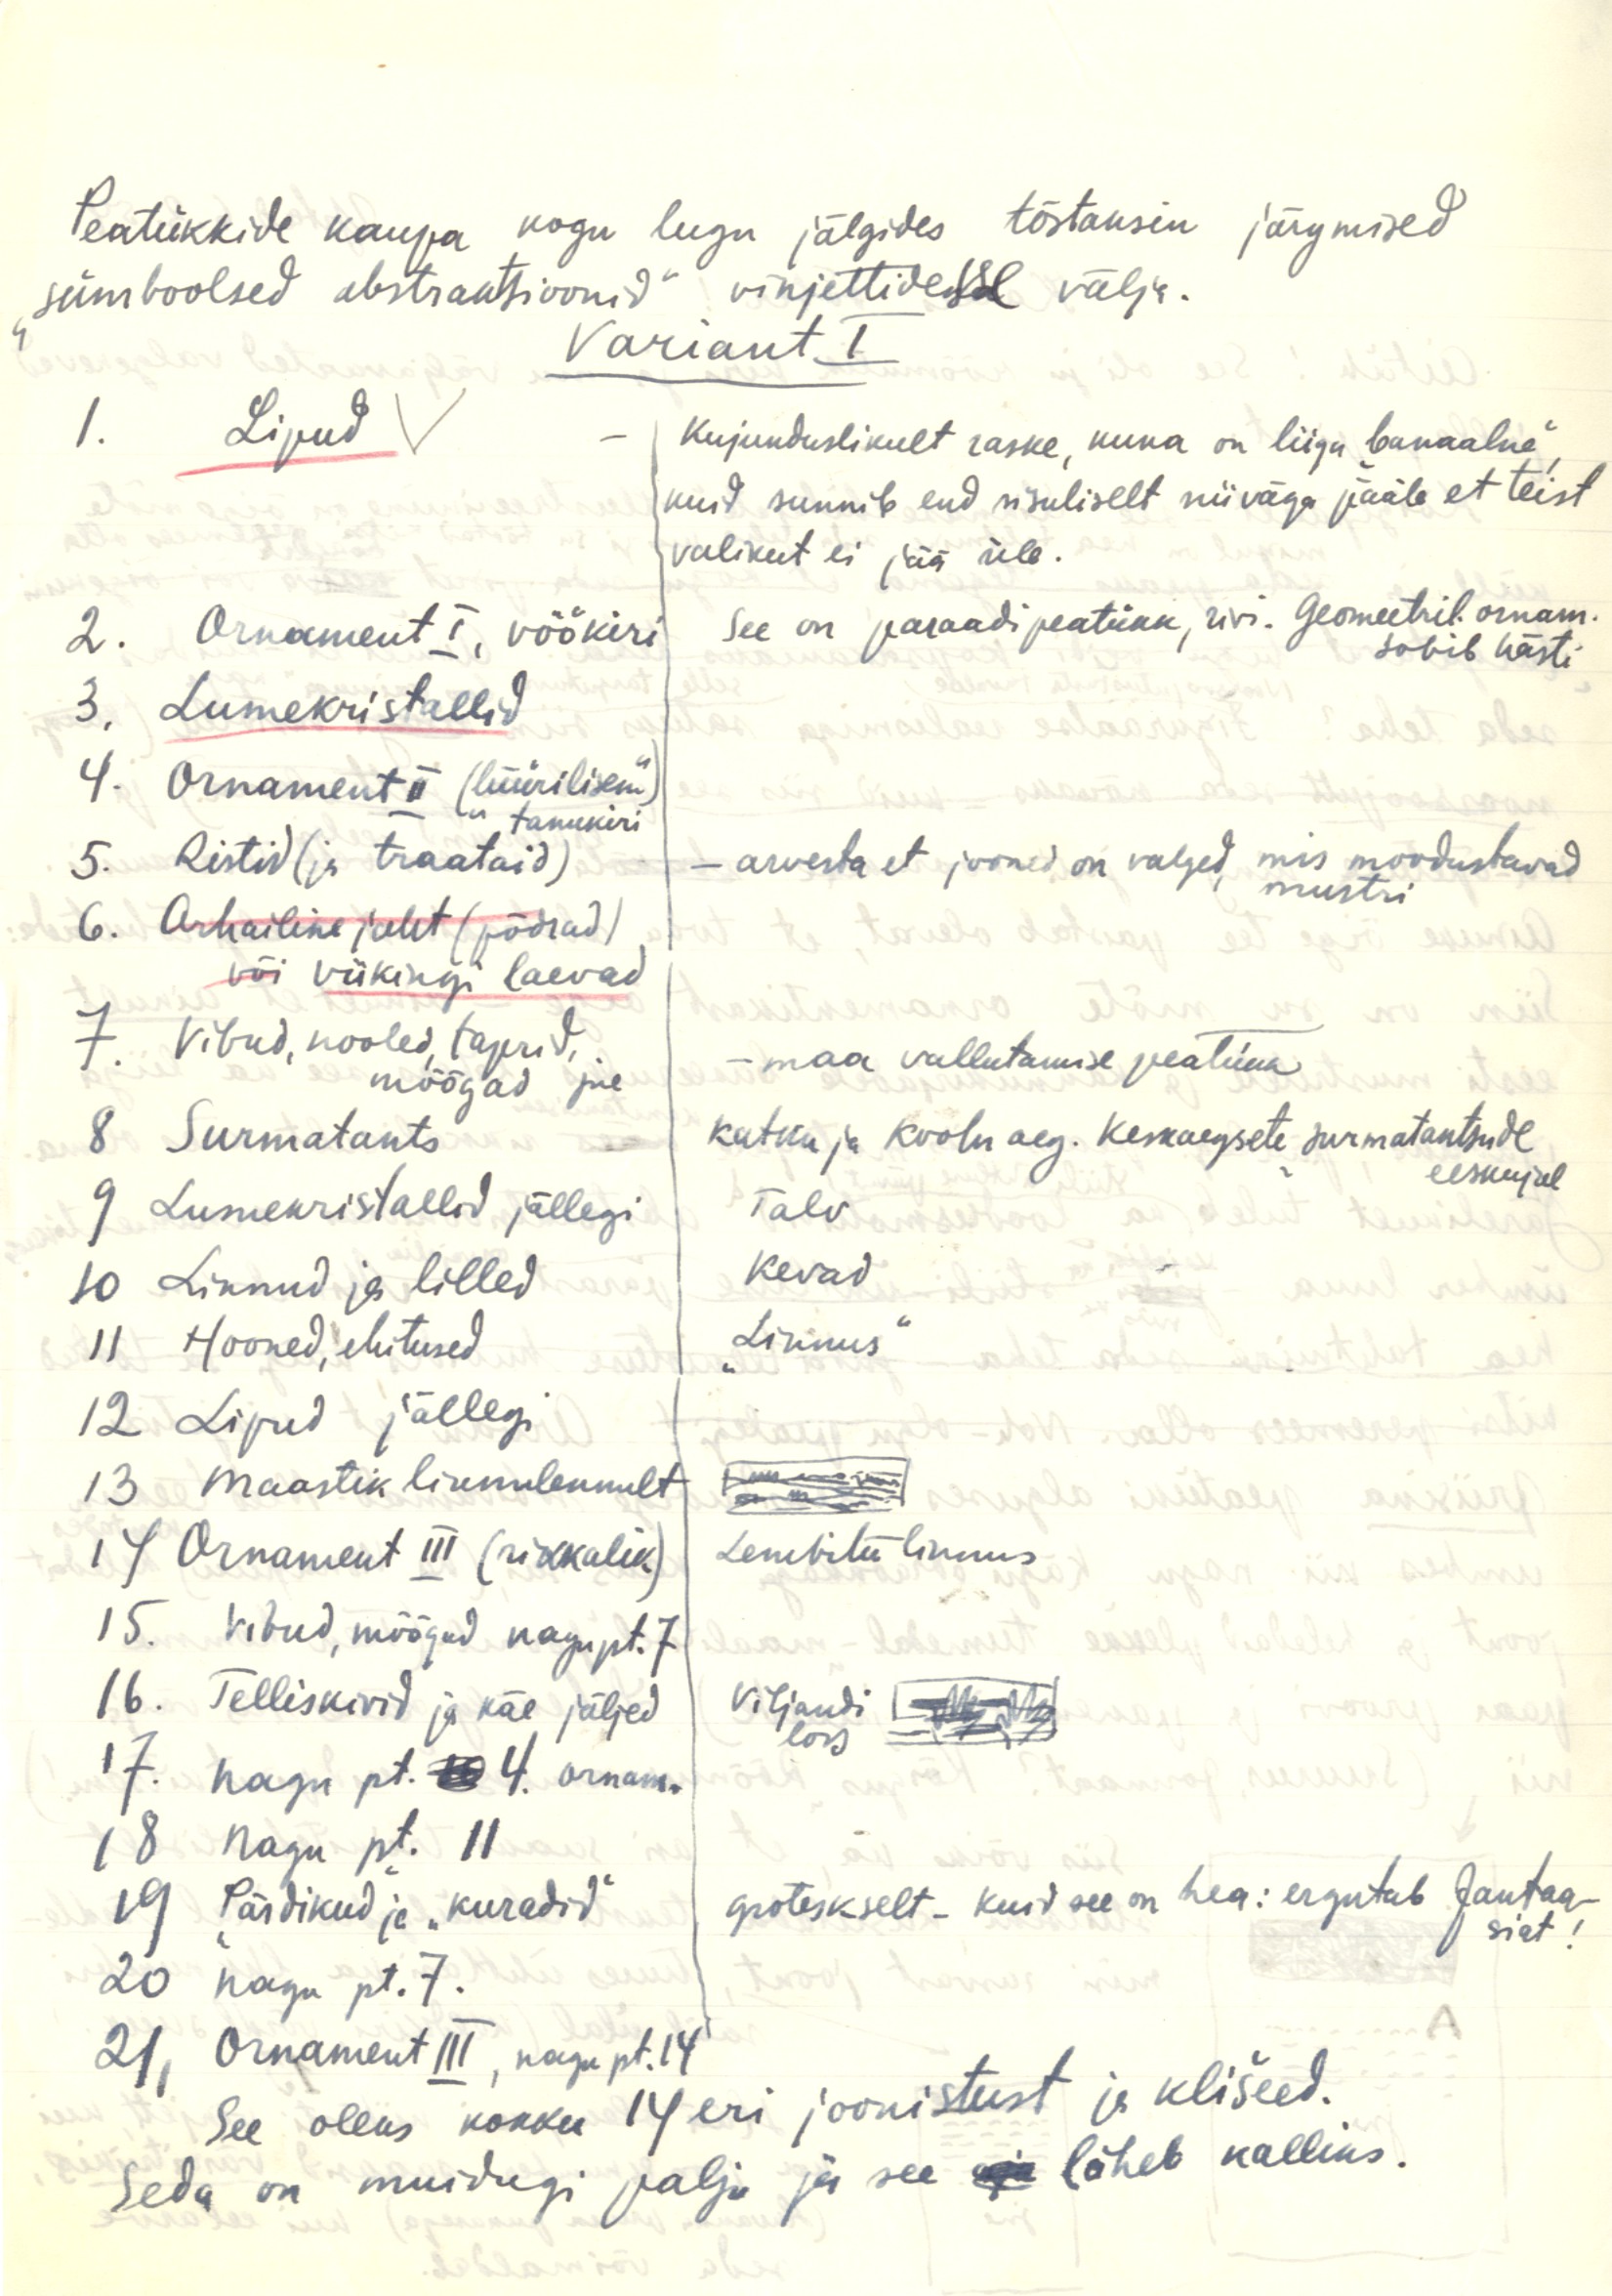 Peatükkide kaupa kogu lugu jälgides tõstaksin järgmised
„sümboolsed abstraktsioonid" vinjettidessse välja.
Variant I
1. Lipud √ – Kujunduslikult raske, kuna on liiga „banaalne",
kuid sunnib end sisuliselt niiväga pääle et teist
valikut ei jää üle.
2. Ornament I, vöökiri See on paraadipeatükk, rivi. Geomeetril. ornam.
sobib hästi
3. Lumekristallid
4. Ornament II („lüürilisem")
tanukiri
5. Ristid (ja traataid) – arvesta et jooned on valged, mis moodustavad
mustri
6. Arhailine jaht (põdrad)
või viikingi laevad
7. Vibud, nooled, taprid,
mõõgad jne – maa vallutamise peatükk
8 Surmatants katku ja koolu aeg. Keskaegsete surmatantsude
eeskujul
9 Lumekristallid jällegi Talv
10 Linnud ja lilled Kevad
11 Hooned, ehitused „Linnus"
12 Lipud jällegi
13 Maastik linnulennult
14 Ornament III (rikkalik) Lembitu linnus
15. Vibud, mõõgad nagu pt. 7
16. Telliskivid ja käe jäljed Viljandi
loss
17. Nagu pt. 4. ornam.
18 Nagu pt. 11
19 „Pärdikud" ja „kuradid" groteskselt – kuid see on hea: ergutab fantaa-
siat!
20 Nagu pt. 7.
21, Ornament III, nagu pt. 14
See oleks kokku 14 eri joonistust ja klišeed.
Seda on muidugi palju ja see läheb kalliks.